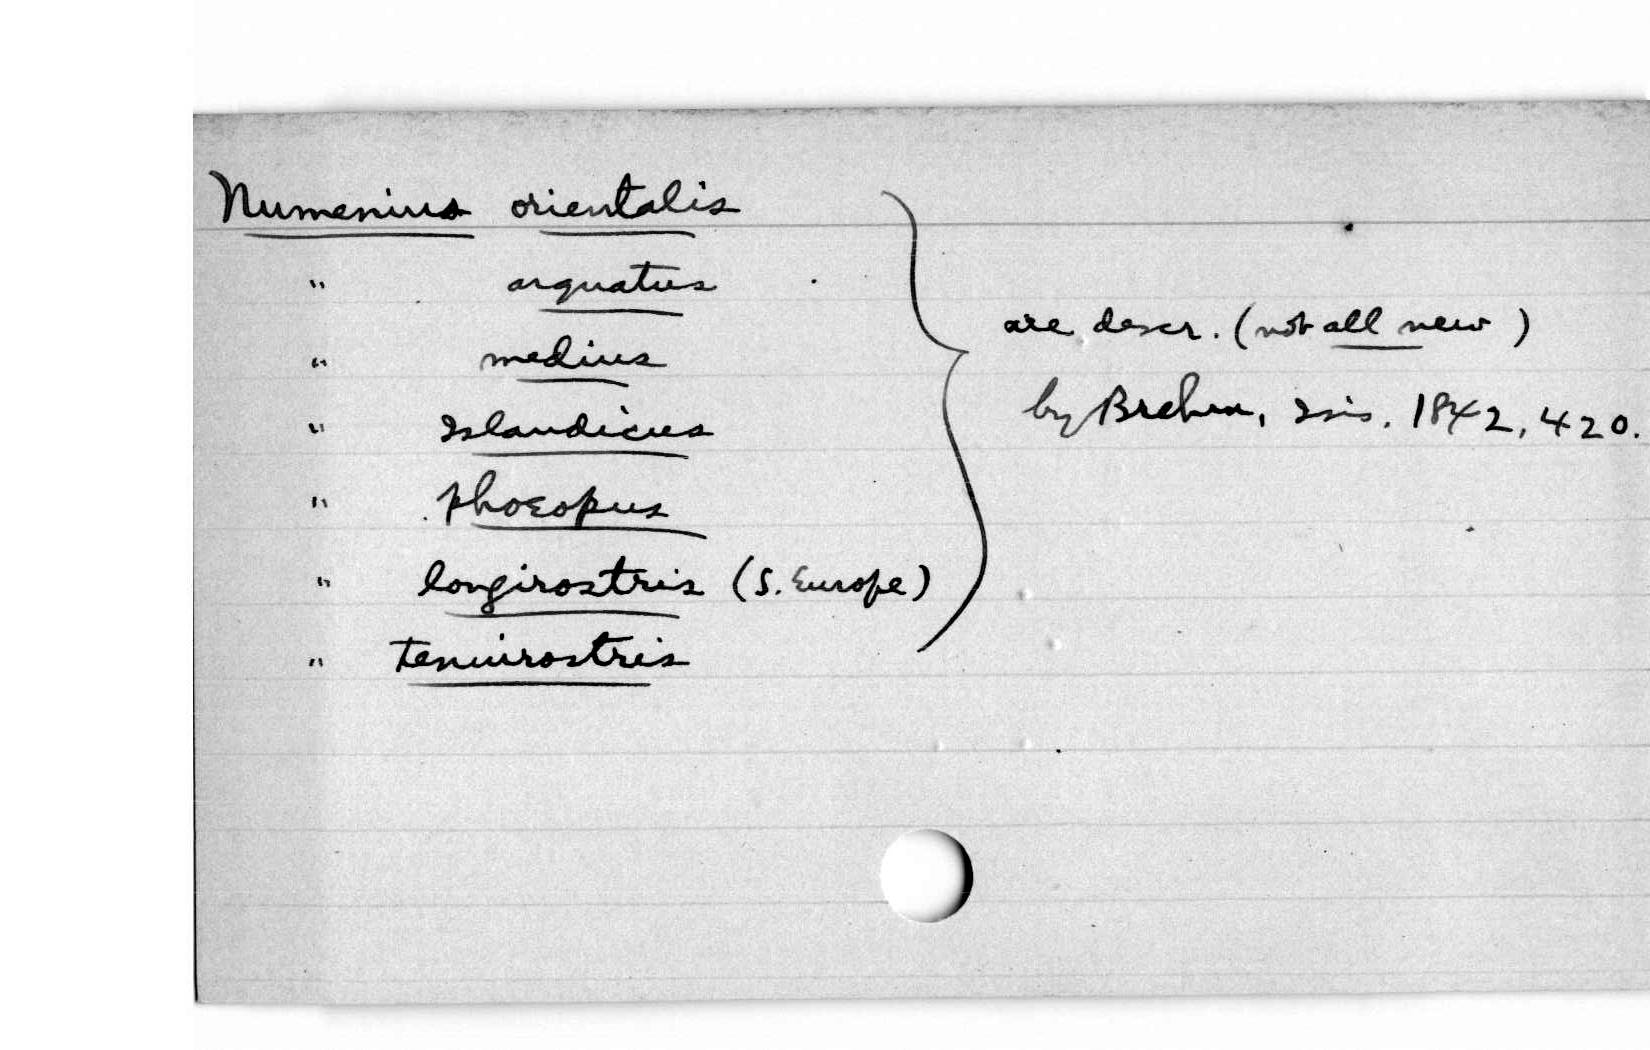 Numenius orientalis
" arquatus
" medius
" Islandicus
" phoeopus
" longirostris (S. Europe)
" tenuirostris
are descr. (not all new)
by Brehm, Isis. 1842, 420.